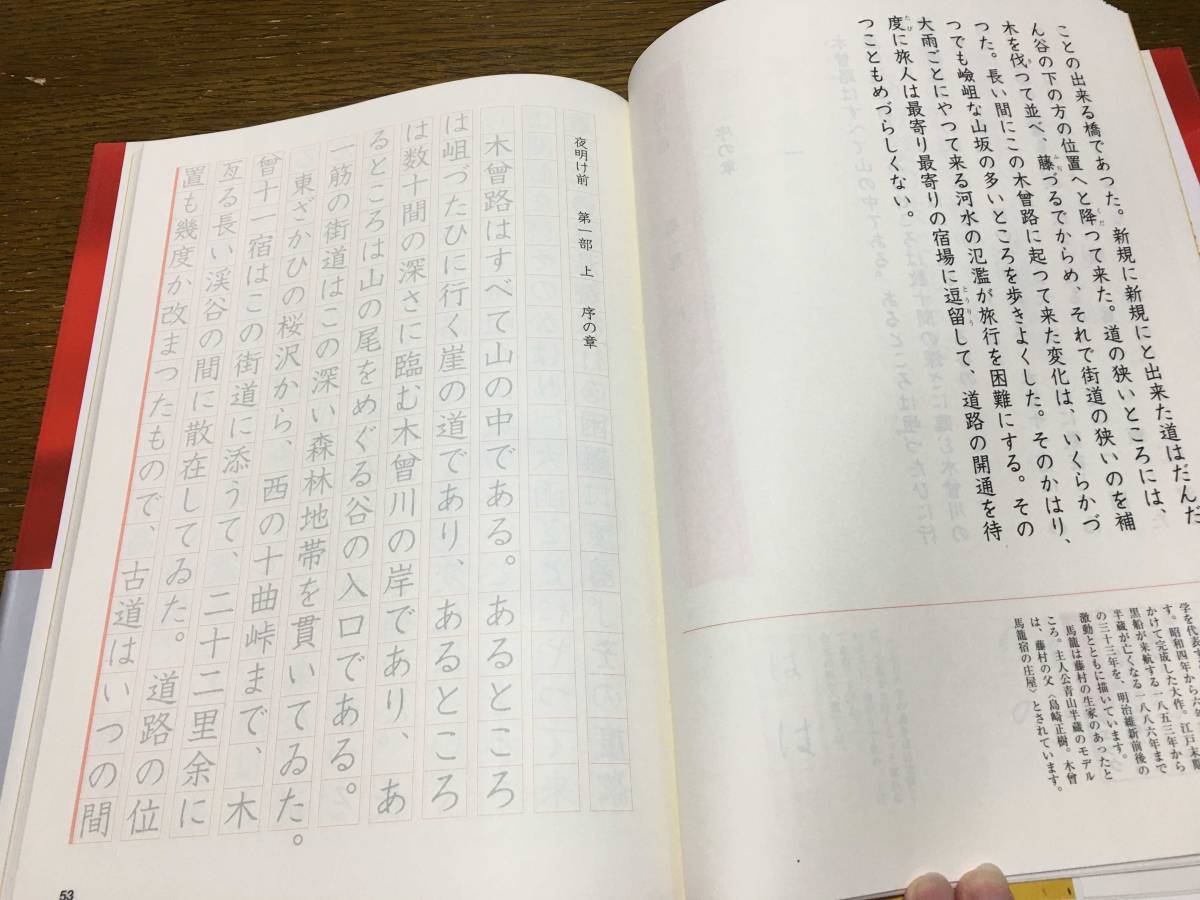 ことの出来る橋であった。新規に新規にと出来た道はだんだ
ん谷の下の方の位置へと降つて来た。道の狭いところには、
木を伐つて並べ、藤づるでからめ、それで街道の狭いのを補
つた。長い間にこの木曾路に起つて来た変化は、いくらかづ
つでも嶮岨な山坂の多いところを歩きよくした。そのかはり、
大雨ごとにやつて来る河水の氾濫が旅行を困難にする。その
度に旅人は最寄り最寄りの宿場に逗留して、道路の開通を待
つこともめづらしくない。
学を代表す
す。昭和四年から六年
かけて完成した大作。江戸末期
黒船が来航する一八五三年から
半蔵が亡くなる一八八六年まで
の三十三年を、明治維新前後の
激動とともに描いています。
馬籠は藤村の生家のあったと
ころ。主人公青山半蔵のモデル
は、藤村の父〈島崎正樹。木曾
馬籠宿の庄屋〉とされています。
夜明け前 第一部 上 序の章
木曾路はすべて山の中である。あるところ
は岨づたひに行く崖の道であり、あるところ
は数十間の深さに臨む木曾川の岸であり、あ
るところは山の尾をめぐる谷の入口である。
一筋の街道はこの深い森林地帯を貫いてゐた。
東ざかひの桜沢から、西の十曲峠まで、木
曾十一宿はこの街道に添うて、二十二里余に
亙る長い渓谷の間に散在してゐた。道路の位
置も幾度か改まったもので、古道はいつの間
53